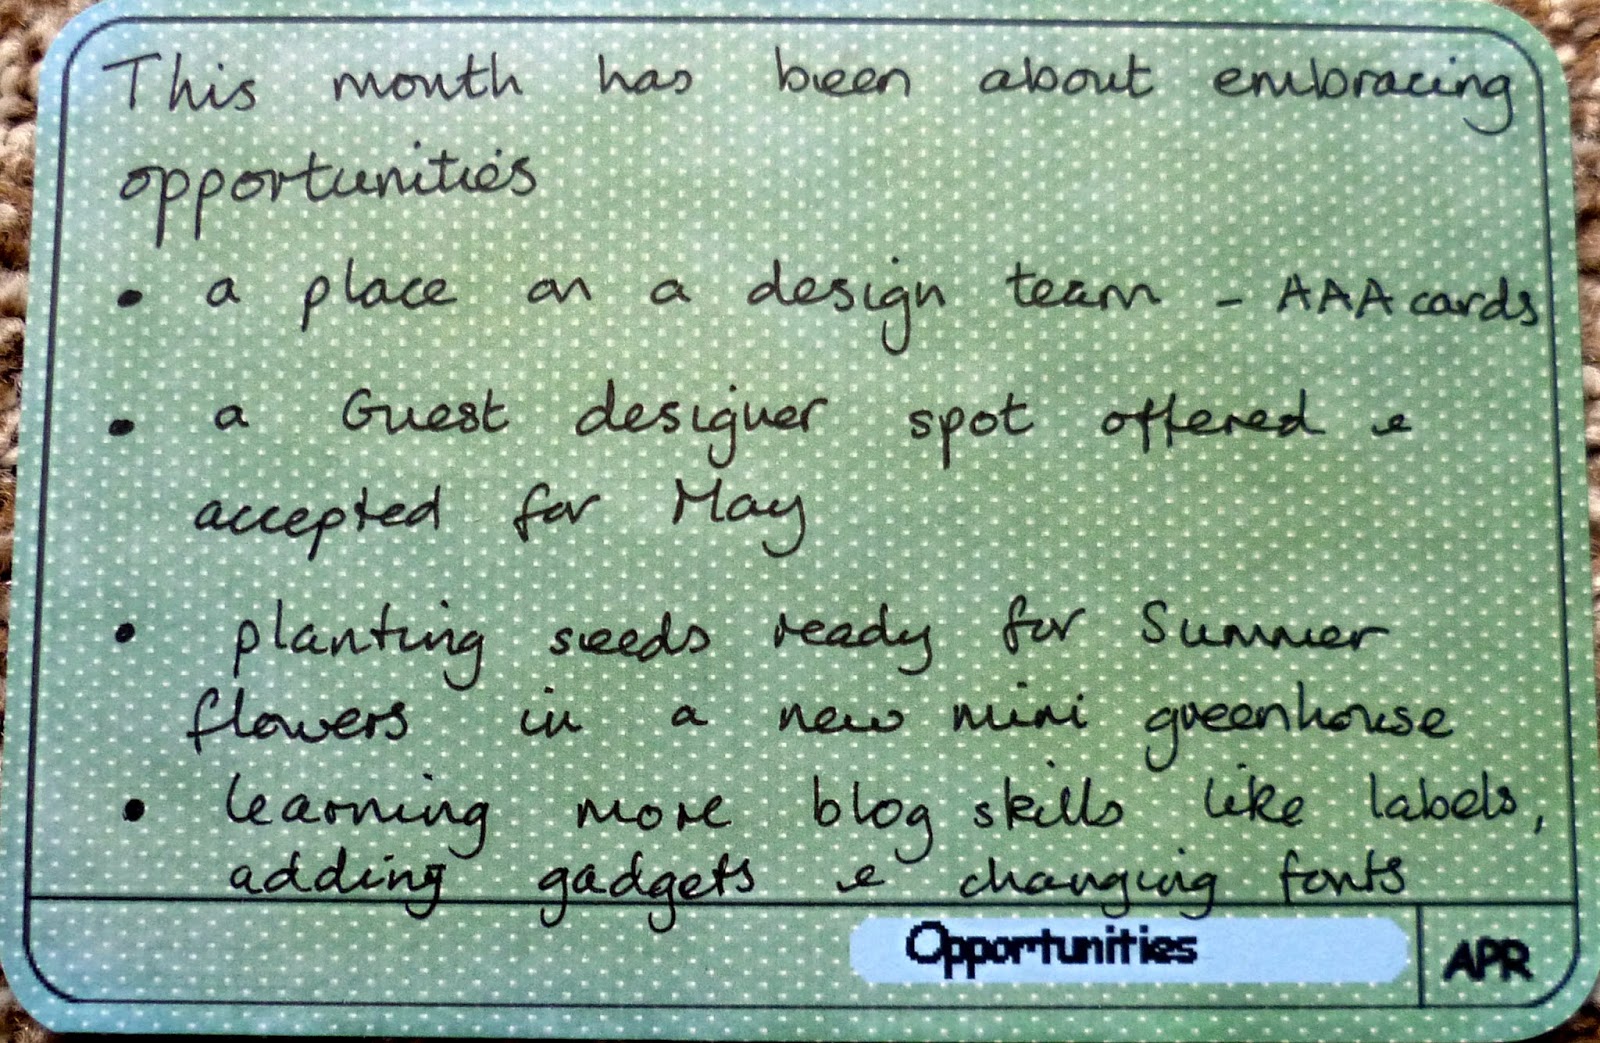 This month has been about embracing
opportunities
• a place on a design team - AAA cards
• a Guest designer spot offered &
accepted for May
• planting seeds ready for Summer
flowers in a new mini greenhouse
• learning more blog skills like labels,
adding gadgets & changing fonts
Opportunities
APR